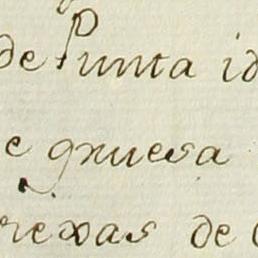 de Punta id
e gruesa
rexas de